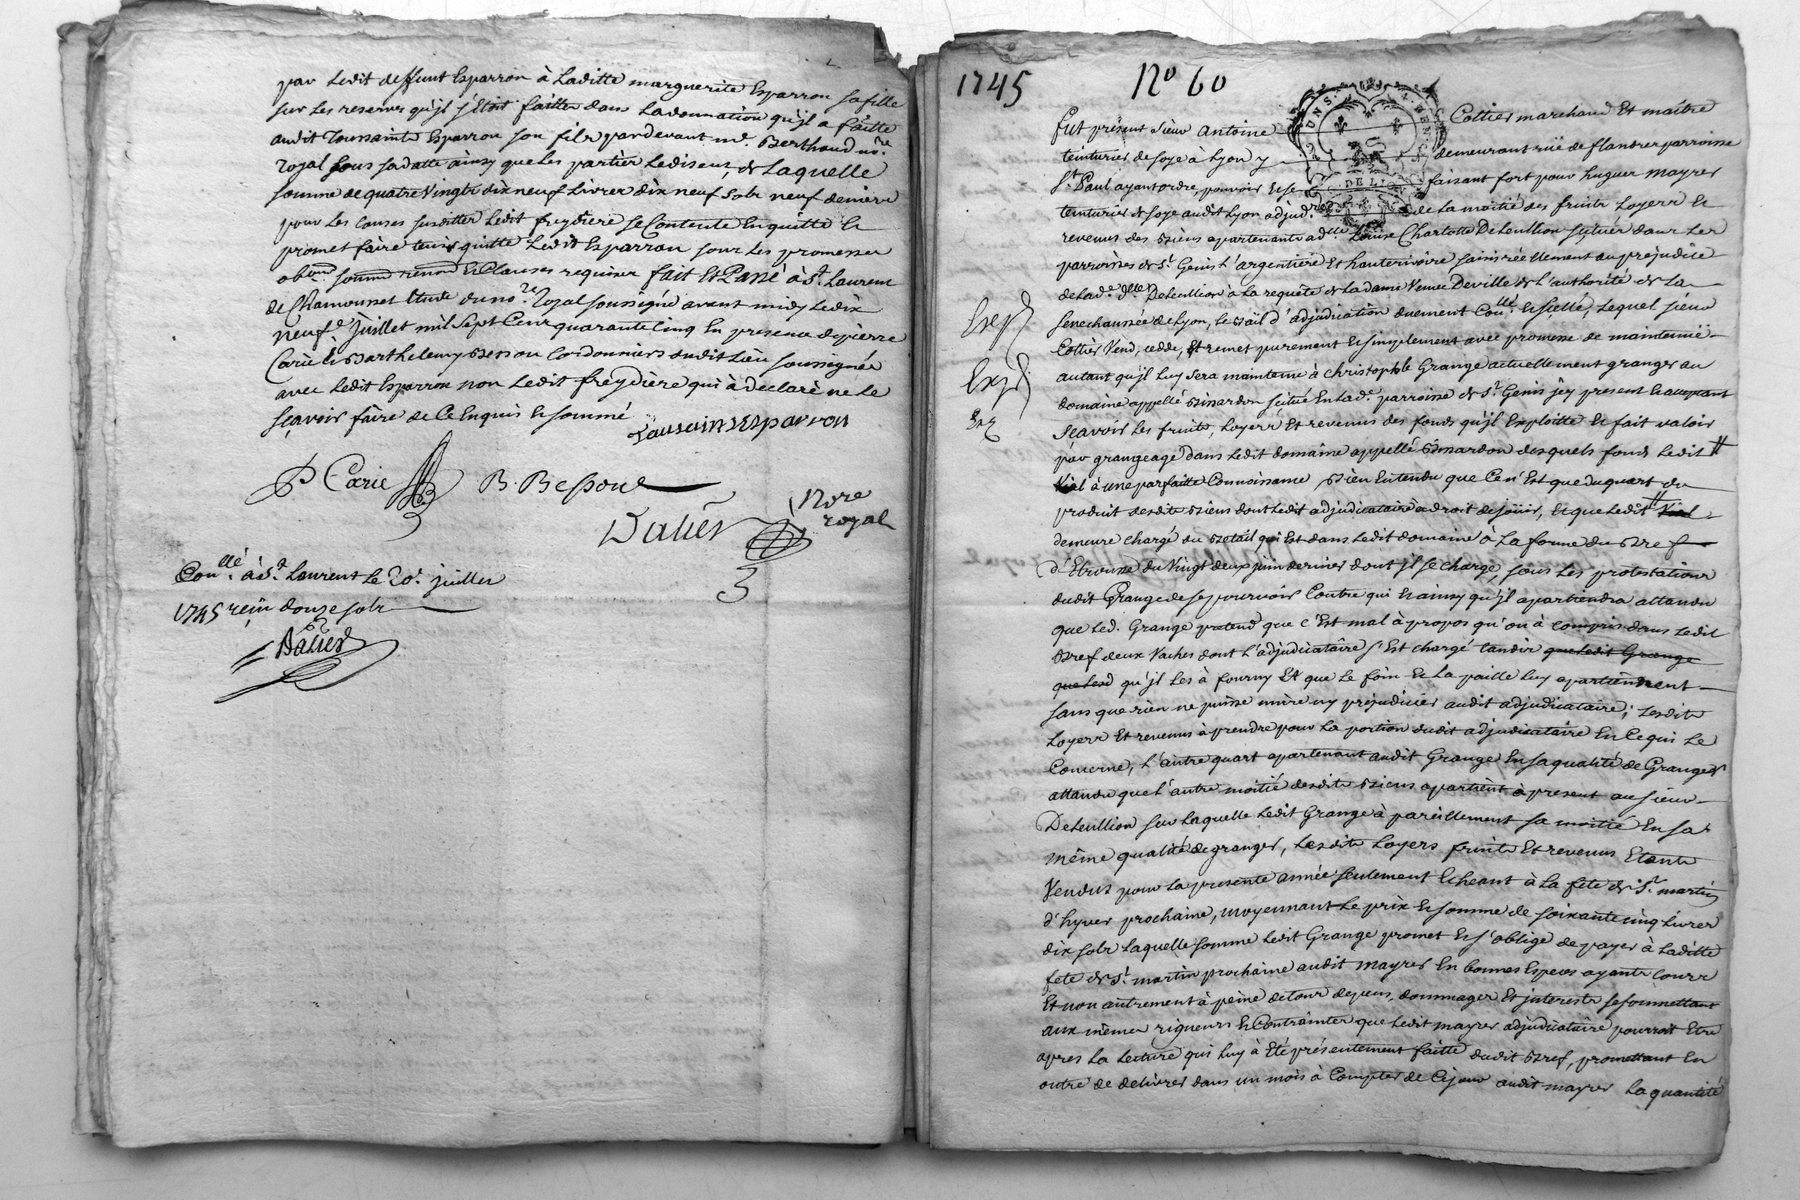 par Ledit deffunt Esparron à Laditte marguerite Esparron sa fille
sur Les reserves qu'jl s'Etoit faittes dans La donnation qu'jl a faitte
audit Toussaint Esparron son fils pardevant me. Berthaud nore.
royal sous sa datte ainsy que les parties Le disent, de Laquelle
somme de quatre Vingts dix neuf Livres dix neuf sols neuf deniers
pour Les Causes susdittes Ledit freydiere se Contente En quitte Et
promet faire tenir quitte Ledit Esparron sous Les promesses
obons. soumns. renons. Et Clauses requises fait Et Passé à St. Laurent
de Chamousset Etude du nore. Royal soussigné avant midy Le dix
neufe. juillet mil sept Cent quarante Cinq En presence de pierre
Carie Et Barthelemy Besson Cordonniers dudit Lieu soussignés
avec Ledit Esparron non Ledit freydière qui à déclaré ne Le
sçavoir faire de Ce Enquis Et sommé
Tousaint Esparron
P Carie B. Besson
Dalier Nore
royal
Conllé. à St. Laurent Le 20e. juillet
1745 reçu douze sols
Dalier
1745 No 60
DE LION
fut présent sieur Antoine Cottier marchand Et maitre
teinturier de soye à Lyon y demeurant rüe de flandres parroisse
St. Paul ayant ordre, pouvoir Et se faisant fort pour hugues mayres
teinturier de soye audit Lyon adjudre. de La moitié des fruits Loyers Et
revenus des Biens apartenants a dlle. Louise Charlotte DeLeullion scitués dans Les
parroisses de St. Genis L'argentiere Et hauterivoire saisis réellement au préjudice
de Lade. dlle. DeLeullion à La requête de La dame Veuve Deville de L'authorité de La
senechaussée de Lyon, Le Bail d'adjudication duement Conllé. Et scellé, Lequel sieur
Exp
Cottier Vend, cedde, Et remet purement Et simplement avec promesse de maintenüe
autant qu'jl Luy sera maintenu à Christophle Grange actuellement granger au
Exp
domaine appellé Bissardon scitué En Lade. parroisse de St. Genis jcy present Et acceptant
Ex
Sçavoir Les fruits, Loyers Et revenus des fonds qu'jl Exploitte Et fait valoir
par grangeage dans Ledit domaine appellé Bissardon desquels fonds Ledit
Vial à une parfaitte Connoissance, Bien Entendu que Ce n'Est que du quart du
produit desdits Biens dont Ledit adjudicataire à droit de joüir, Et que Ledit Vial
demeure chargé du Betail qui Est dans Ledit domaine à La forme du Bref
d'Etrousse du Vingt deux juin dernier dont jl se charge, sous Les protestations
dudit Grange de se pourvoir Contre qui Et ainsy qu'jl apartiendra attandu
que Led. Grange pretend que c'Est mal à propos qu'on à compris dans Ledit
Bref deux Vaches dont L'adjudicataire s'Est chargé tandis que Ledit Grange
qu'jl Les à fourny Et que Le foin Et La paille Luy apartiennent
sans que rien ne puisse nuire ny préjudicier audit adjudicataire; Lesdits
Loyers Et revenus à prendre pour La portion dudit adjudicataire En Ce qui Le
Concerne, L'autre quart apartenant audit Grange En sa qualité de Granger
attandu que L'autre moitié desdits Biens apartient à present au sieur
DeLeullion sur Laquelle Ledit Grange à pareillement sa moitié En sa
même qualité de granger, Lesdits Loyers fruits Et revenus Etants
Vendus pour La presente année seulement Echeant à La fete de St. martin
d'hyver prochaine, moyennant Le prix Et somme de soixante cinq Livres
dix sols Laquelle somme Ledit Grange promet Et s'oblige de payer à Laditte
fete de St. martin prochaine audit mayres En bonnes Especes ayants Cours
Et non autrement à peine de tous depens, dommages Et jnterests se soumettant
aux mêmes rigueurs Et Contraintes que Ledit mayres adjudicataire pourroit Etre
apres La Lecture qui Luy à Eté présentement faitte dudit Bref, promettant En
outre de delivrer dans un mois à Compter de Cejour audit mayres La quantité